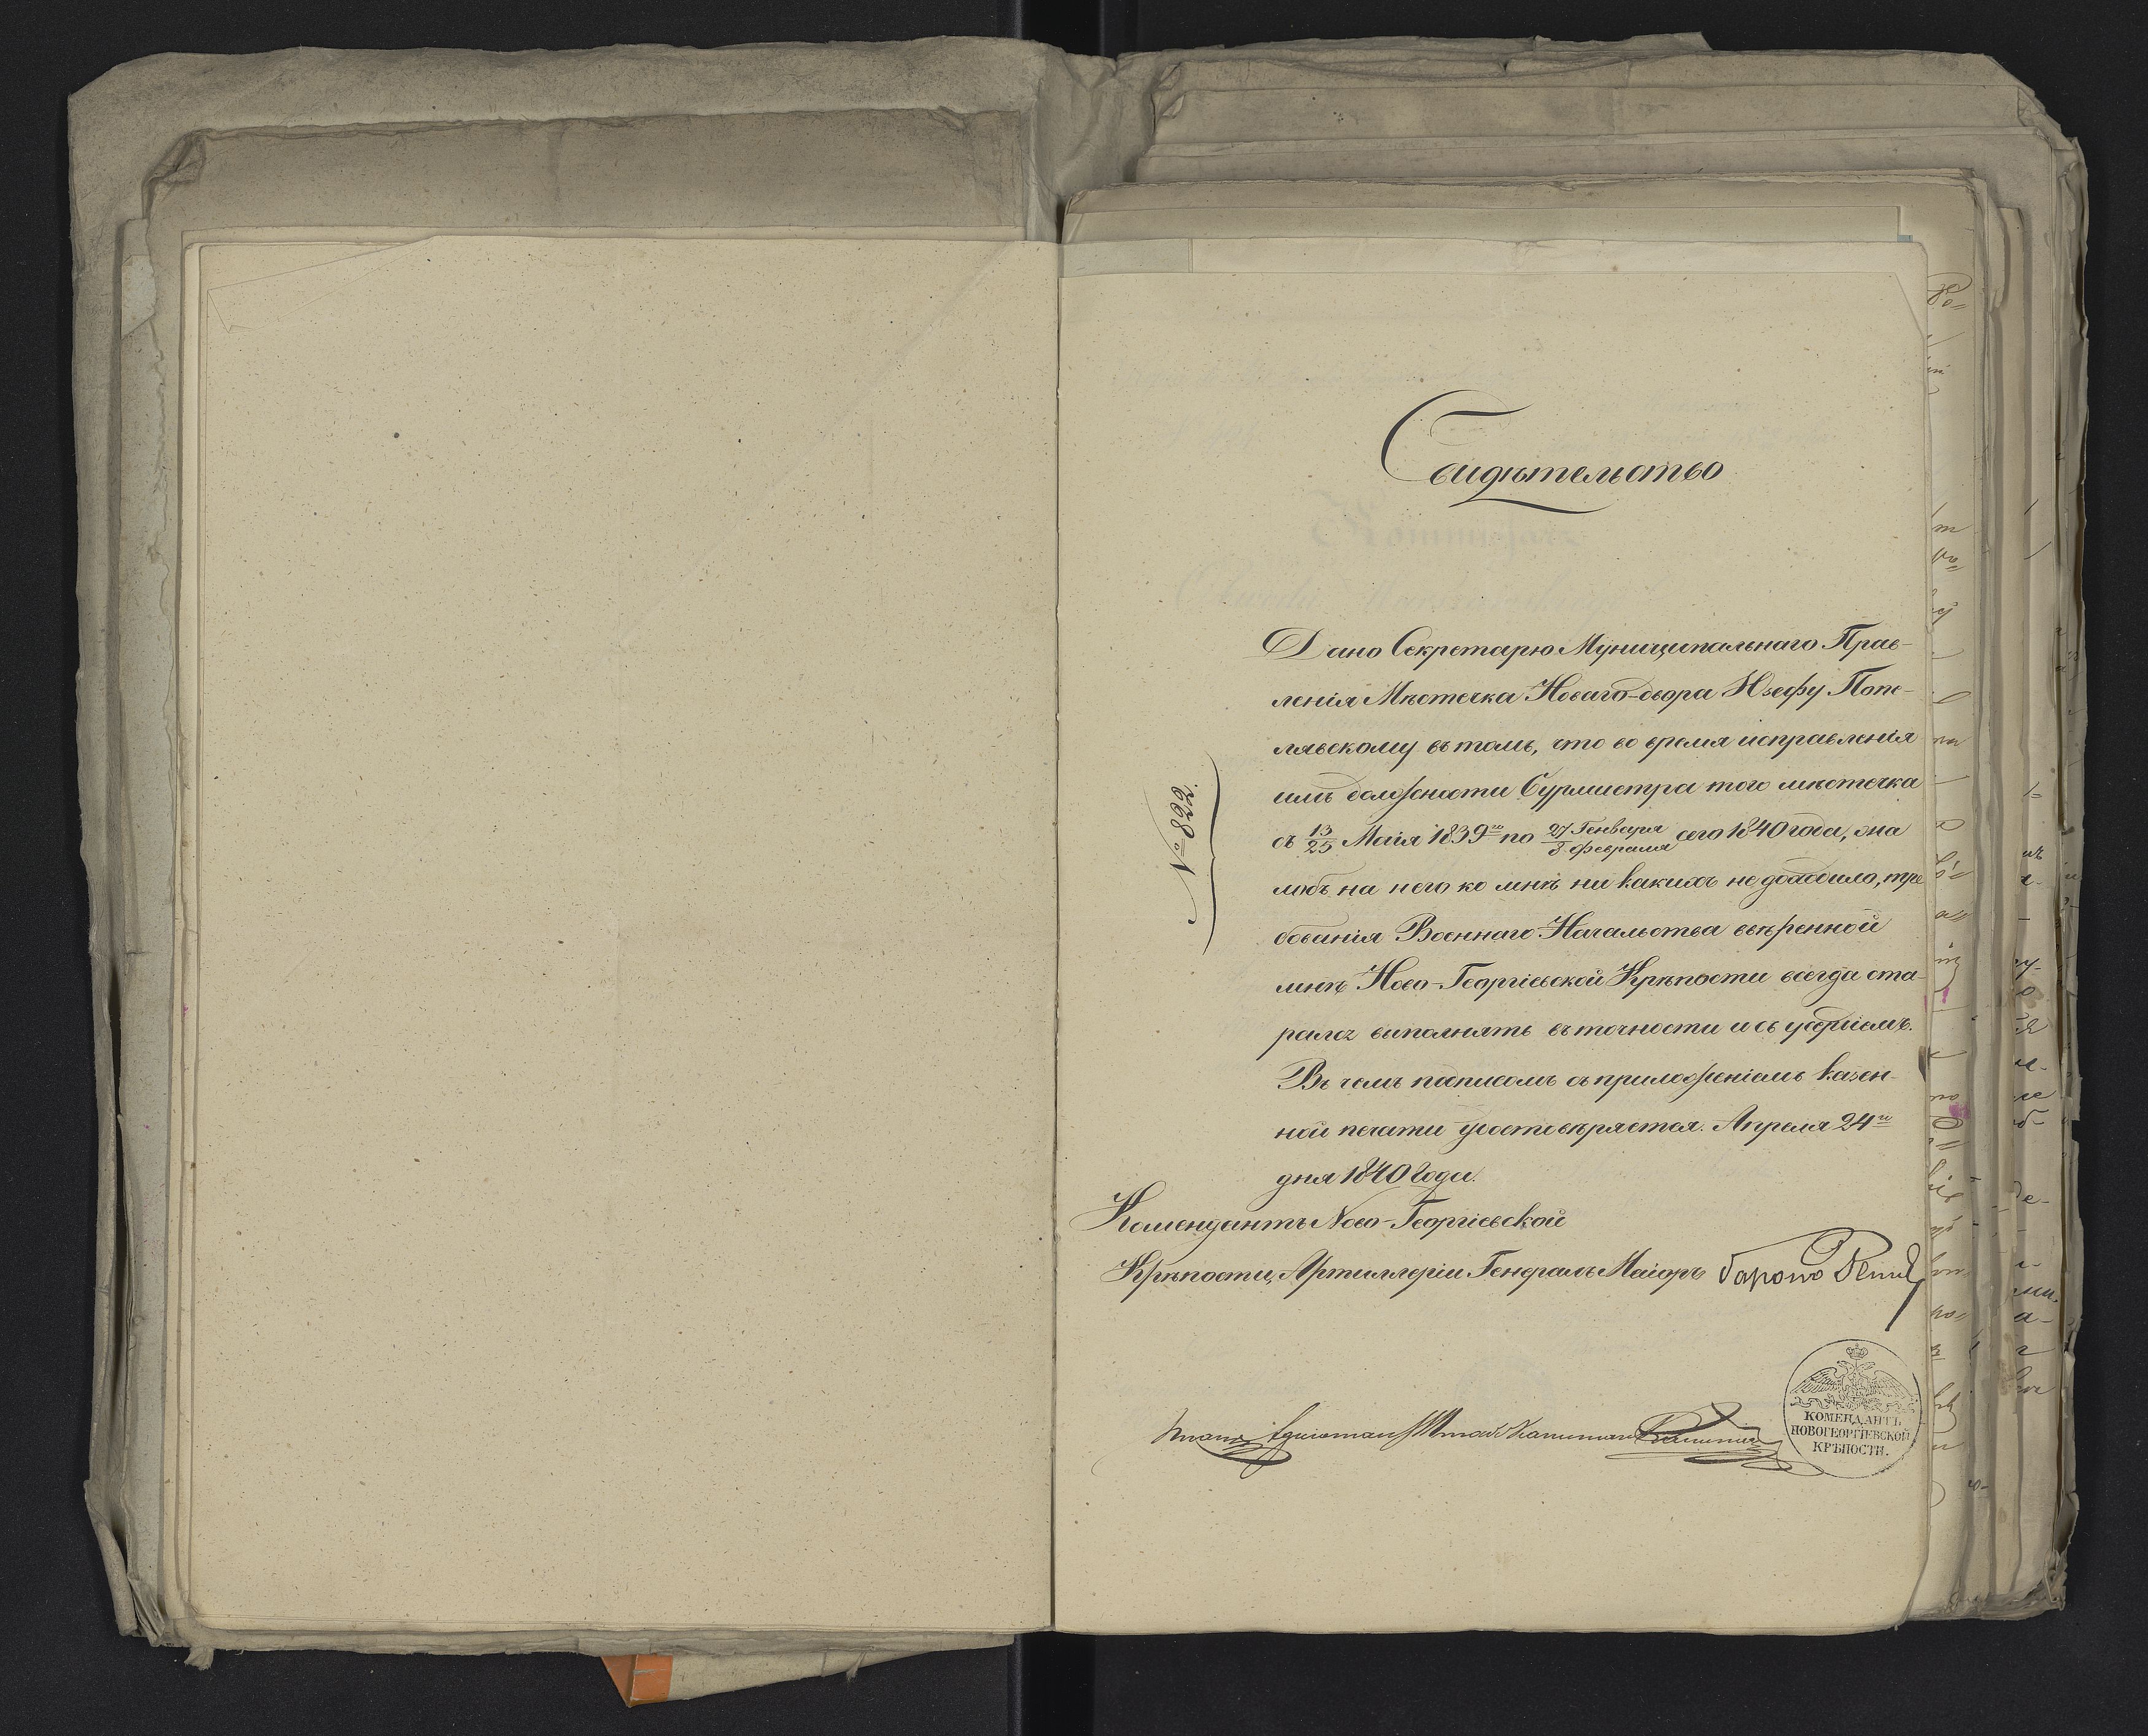 Свидѣтельство
№ 822.
Дано Секретарю Муниципальнаго Прав-
ленія Мѣстечка Новаго-двора Юзефу Попе-
лявскому въ томъ, что во время исправленія
имъ должности Бурмистра того мѣстечка
съ 13/25 Маія 1839го по 27 Генваря/8 февраля сего 1840 года,
на него ко мнѣ ни какихъ не доходило, тре
бованія Военнаго Начальства ввѣренной
мнѣ Ново-Георгіевской Крѣпости всегда ста-
рался выполнять въ точности и съ усердіемъ.
Въ чемъ подписомъ съ приложеніемъ казен-
ной печати удостовѣряется. Апреля 24го
дня 1840 года.
Комендантъ Ново-Георгіевской
Крѣпости, Артиллеріи Генералъ Маіоръ баронъ
КОМЕНДАНТЪ
НОВОГЕОРГІЕВСКОЙ
КРѢПОСТИ.